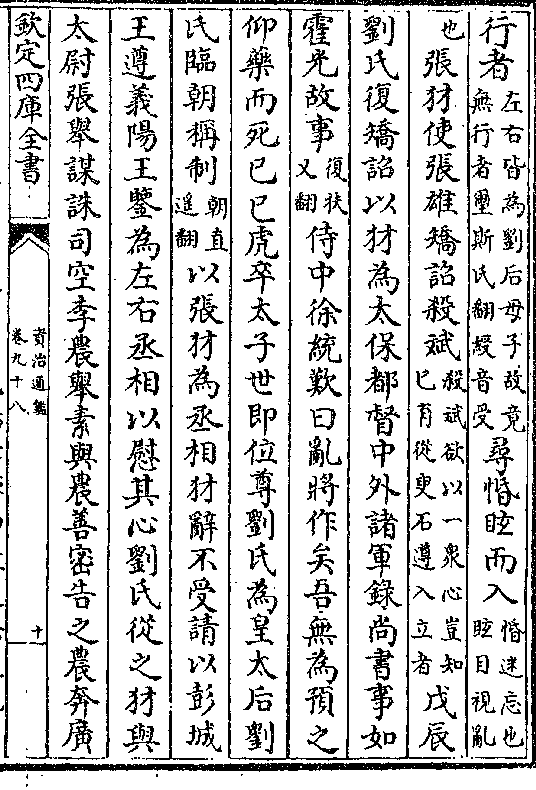 行者左右皆為劉后母子故竟無行者璽斯氏翻綬音受尋惛眩而入惛迷忘也眩目視亂
也張豺使張雄矯詔殺斌殺斌欲以一衆心豈知已有從臾石遵入立者戊辰
劉氏復矯詔以豺為太保都督中外諸軍錄尚書事如
霍光故事復扶又翻侍中徐統歎曰亂將作矣吾無為預之
仰藥而死己巳虎卒太子世即位尊劉氏為皇太后劉
氏臨朝稱制朝直遥翻以張豺為丞相豺辭不受請以彭城
王遵義陽王鑒為左右丞相以慰其心劉氏從之豺與
太尉張舉謀誅司空李農舉素與農善密告之農奔廣
欽定四庫全書
資治通鑑
卷九十八
十